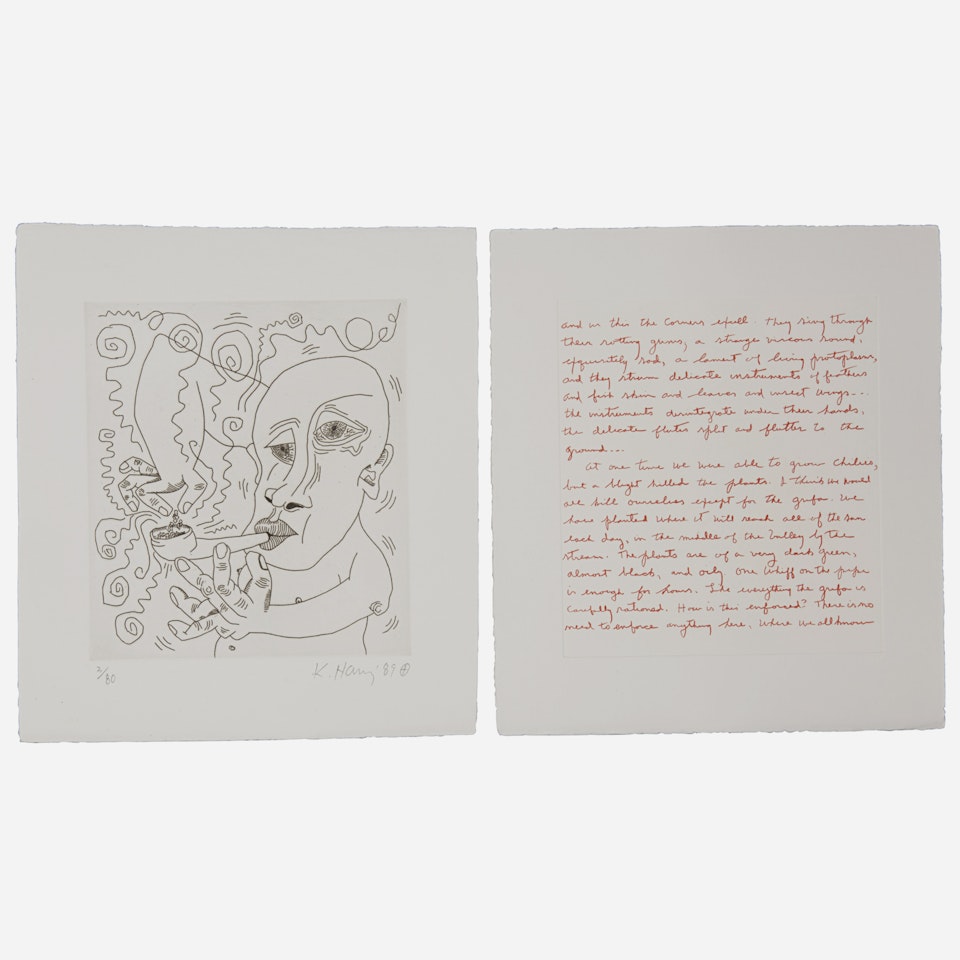 2/80
K. Haring '89
and in this the Corners excell. They sing through
their rotting gums, a strange viscous sound,
exquisitely sad, a lament of living protoplasm,
and they strum delicate instruments of feathers
and fish skin and leaves and insect wings...
the instruments disintegrate under their hands,
the delicate flutes split and flutter to the
ground...
At one time we were able to grow Chilies,
but a blight killed the plants. I think we would
all kill ourselves except for the grifa. We
have planted where it will reach all of the sun
each day, in the middle of the Valley by the
stream. The plants are of a very dark green,
almost black, and only one whiff on the pipe
is enough for hours. Like everything the grifa is
carefully rationed. How is this enforced? There is no
need to enforce anything here. Where we all know